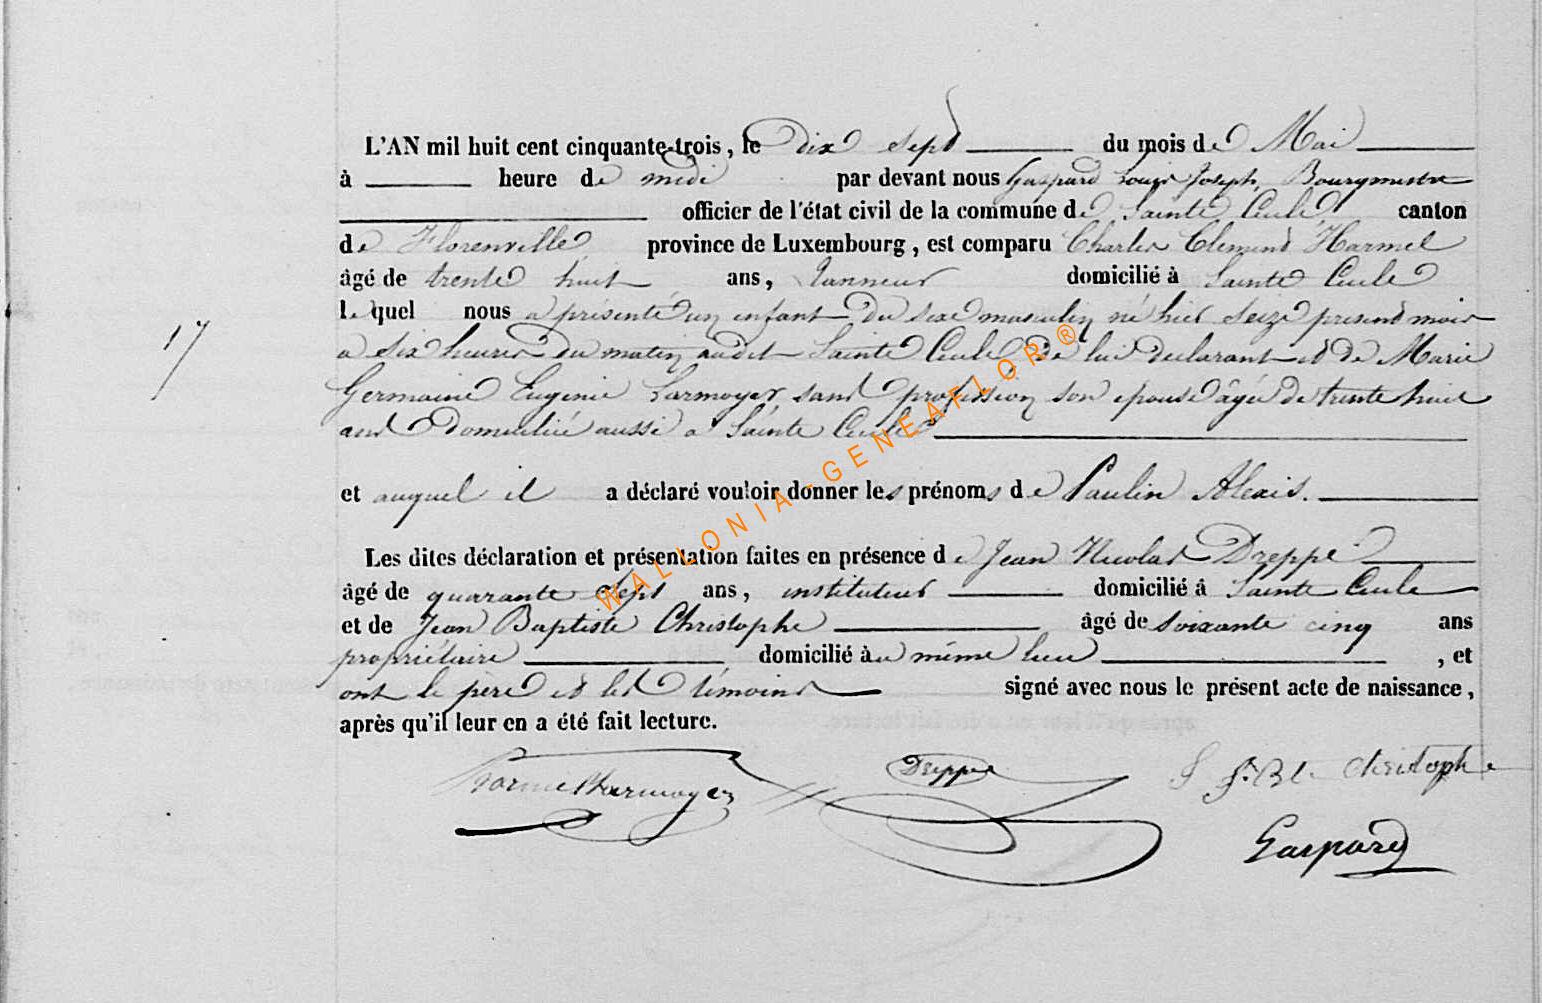 L'AN mil huit cent cinquante-trois, le dix sept du mois de Mai
à heure de midi par devant nous Gaspard Louis Joseph, Bourgmestre
officier de l'état civil de la commune de Sainte Cecile canton
de Florenville, province de Luxembourg, est comparu Charles Clement Harmel
âgé de trente huit ans, Tanneur domicilié à Sainte Cecile
lequel nous a présenté un enfant du sexe masculin né hier seize present mois
a six heures du matin audit Sainte Cecile, de lui declarant et de Marie
Germaine Eugenie Larmoyer sans profession son epouse âgée de trente huit
ans domiciliée aussi a Sainte Cecile
et auquel il a déclaré vouloir donner les prénoms de Paulin Alexis.
Les dites déclaration et présentation faites en présence de Jean Nicolas Dreppe
âgé de quarante sept ans, instituteur domicilié à Sainte Cecile
et de Jean Baptiste Christophe âgé de soixante cinq ans
propriétaire domicilié au même lieu, et
ont le père et les témoins signé avec nous le présent acte de naissance,
après qu'il leur en a été fait lecture.
17
Harmel Larmoyer Dreppe Christophe
Gaspard
WALLONIA-GENEAFLOR®